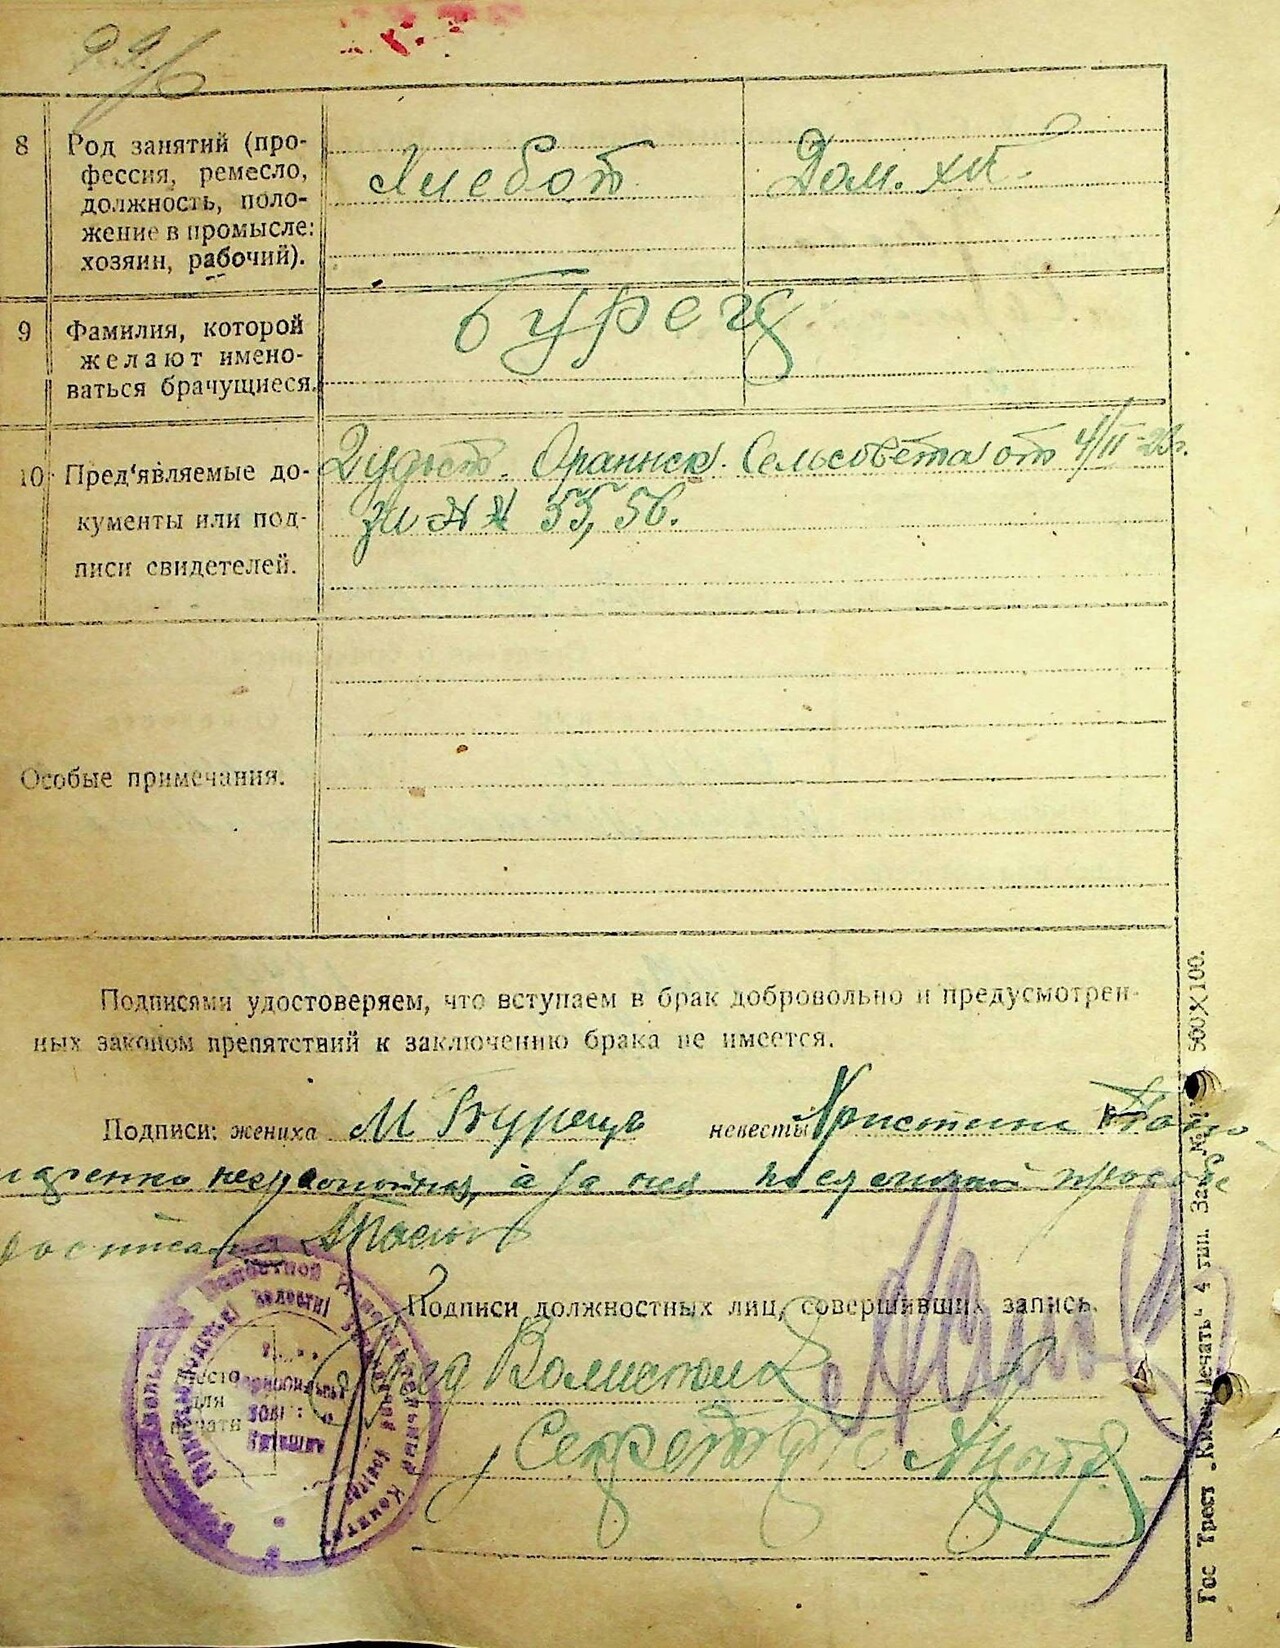 8 Род занятий (про-
фессия, ремесло,
должность, поло-
жение в промысле:
хозяин, рабочий).
Хлебот Дом. хоз.
9 Фамилия, которой
желают имено-
ваться брачущиеся.
Бурец
10 Пред'являемые до-
кументы или под-
писи свидетелей.
Удост. Оранск. Сельсовета от 4/II-23г.
за №№ 55, 56.
Особые примечания.
Подписями удостоверяем, что вступаем в брак добровольно и предусмотрен-
ных законом препятствий к заключению брака не имеется.
Подписи: жениха М Бурець невесты Христини
неграмотная, а за нея по ея личной просьбе
росписался
Подписи должностных лиц, совершивших запись.
Пред Волисполк
Секрет
Место
для
печати
Гос Трест „Киев-Печать" 4 тип. Зак. № 500×100.